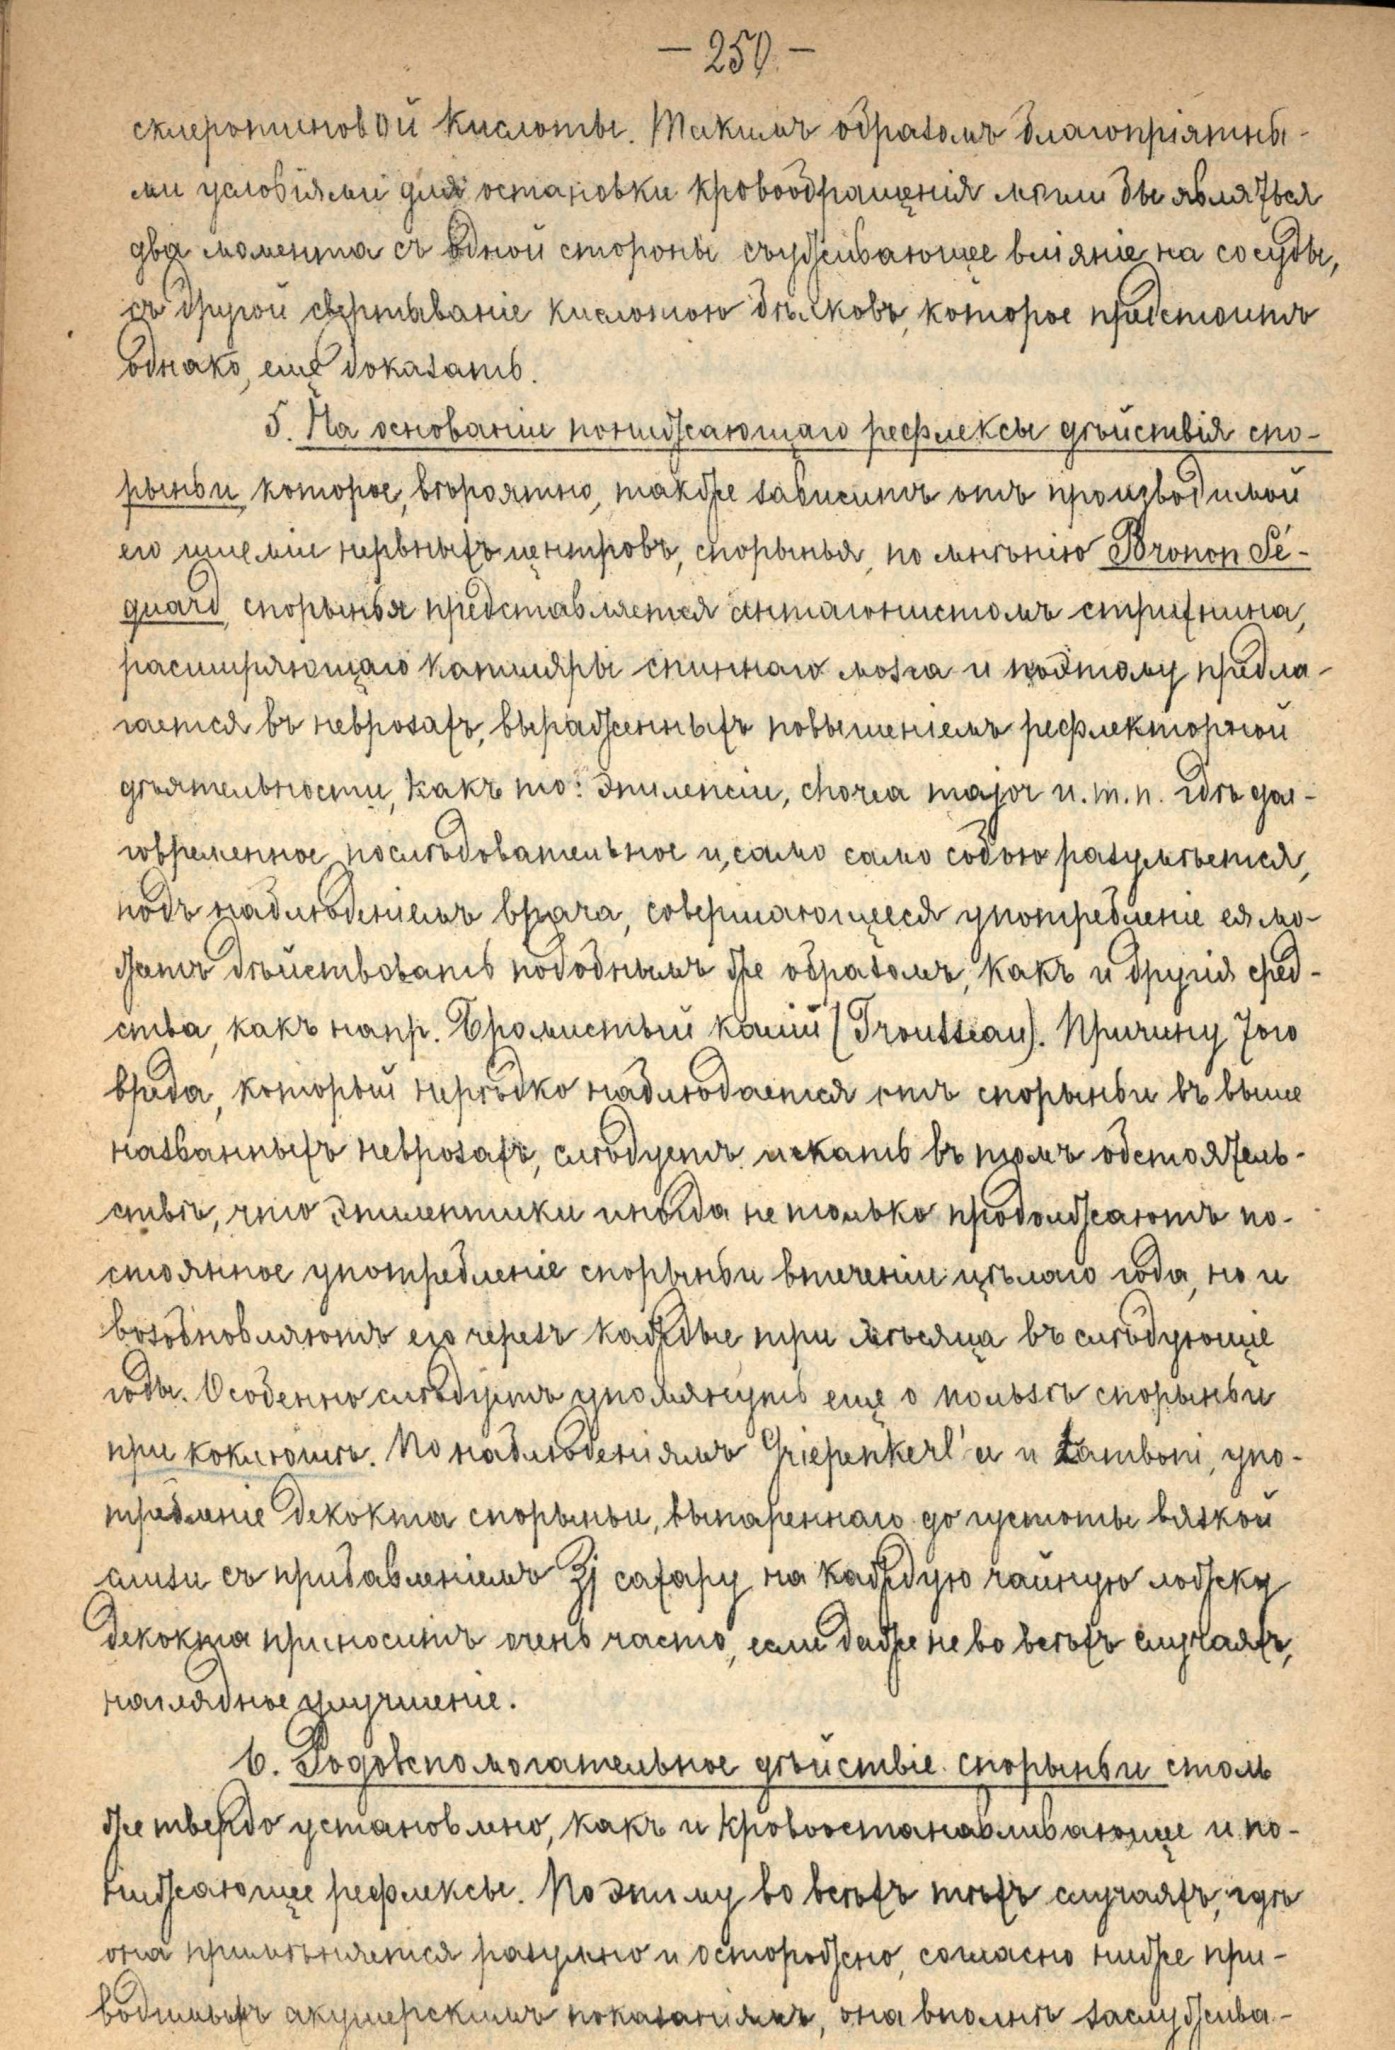 — 250 —
склеротиновой кислоты. Такимъ образомъ благопріятны-
ми условіями для остановки кровообращенія могли бы являться
два момента съ одной стороны съуживающее вліяніе на сосуды,
съ другой свертываніе кислотою бѣлковъ, которое предстоитъ
однако, еще доказать.
5. На основаніи понижающаго рефлексы дѣйствія спо-
рыньи, которое, вѣроятно, также зависитъ отъ производимой
ею ишеміи нервныхъ центровъ, спорынья, по мнѣнію Bronon Sé-
quard, спорынья представляется антагонистомъ стрихнина,
расширяющаго капиляры спиннаго мозга и поэтому предла-
гается въ неврозахъ, выраженныхъ повышеніемъ рефлекторной
дѣятельности, какъ то: эпилепсіи, chorea major и.т.п. гдѣ дол-
говременное последовательное и, само само собою разумѣется,
подъ наблюденіемъ врача, совершающееся употребленіе ея мо-
жетъ дѣйствовать подобнымъ же образомъ, какъ и другія сред-
ства, какъ напр. Бромистый калій (Trousseau). Причину того
вреда, который нерѣдко наблюдается отъ спорыньи въ выше
названныхъ неврозахъ, слѣдуетъ искать въ томъ обстоятель-
ствѣ, что эпилептики иногда не только продолжаютъ по-
стоянное употребленіе спорыньи втеченіи цѣлаго года, но и
возобновляютъ его черезъ каждые три мѣсяца въ слѣдующіе
годы. Особенно слѣдуетъ упомянуть еще о пользѣ спорыньи
при коклюшѣ. По наблюденіямъ Griepenkerl'a и Zamboni, упо-
требленіе декокта спорыньи, выпареннаго до густоты вязкой
слизи съ прибавленіемъ ʒj сахару на каждую чайную ложку
декокта приноситъ очень часто, если даже не во всѣхъ случаяхъ,
наглядное улучшеніе.
6. Родовспомогательное дѣйствіе спорыньи столь
же твердо установлено, какъ и кровоостанавливающее и по-
нижающее рефлексы. По этому во всѣхъ тѣхъ случаяхъ, гдѣ
она примѣняется разумно и осторожно, согласно ниже при-
водимымъ акушерскимъ показаніямъ, она вполнѣ заслужива-